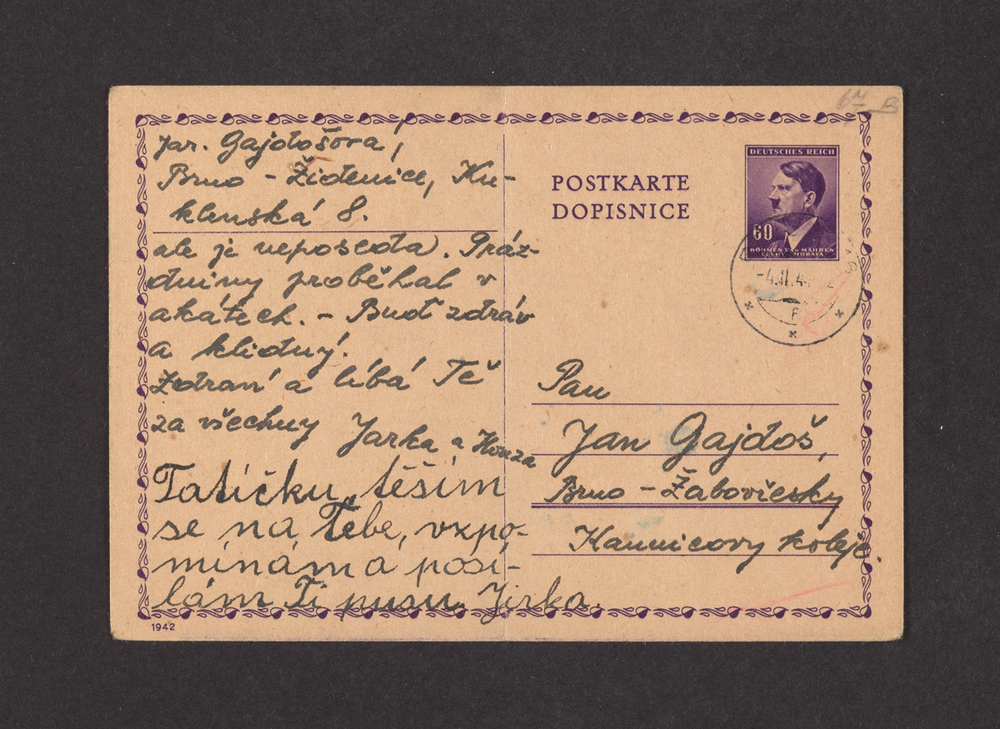 Jar. Gajdošova,
Brno - Židenice, Ku-
klenská 8.
ale je neposeda. Práz-
dniny proběhal v
akátech. - Buď zdráv
a klidný.
Zdraví a líbá Tě
za všechny Jarka a Honza
Tatíčku, těším
se na Tebe, vzpo-
mínám a posí-
lám Ti pusu. Jirka.
1942
POSTKARTE
DOPISNICE
DEUTSCHES REICH
60
BÖHMEN u. MÄHREN
ČECHY MORAVA
Pan
Jan Gajdoš,
Brno - Žabovřesky
Kaunicovy koleje.